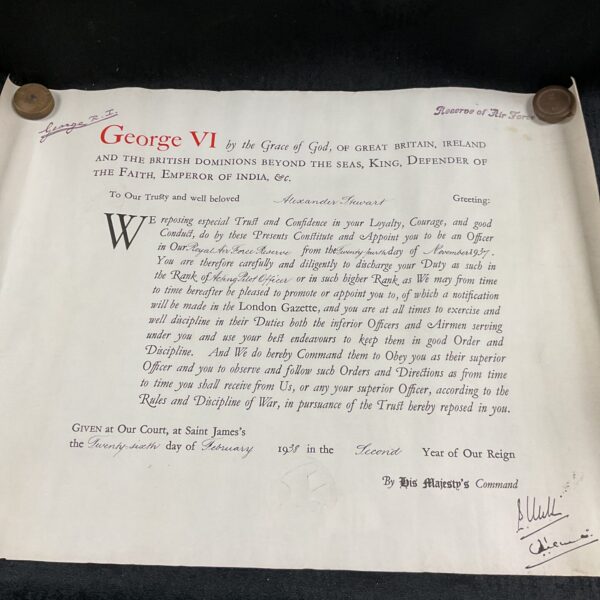 George R.I.
Reserve of Air Force
George VI by the Grace of God, OF GREAT BRITAIN, IRELAND
AND THE BRITISH DOMINIONS BEYOND THE SEAS, KING, DEFENDER OF
THE FAITH, EMPEROR OF INDIA, &c.
To Our Trusty and well beloved Alexander Stewart Greeting:
WE reposing especial Trust and Confidence in your Loyalty, Courage, and good
Conduct, do by these Presents Constitute and Appoint you to be an Officer
in Our Royal Air Force Reserve from the Twenty fourth day of November 1937.
You are therefore carefully and diligently to discharge your Duty as such in
the Rank of Acting Pilot Officer or in such higher Rank as We may from time
to time hereafter be pleased to promote or appoint you to, of which a notification
will be made in the London Gazette, and you are at all times to exercise and
well discipline in their Duties both the inferior Officers and Airmen serving
under you and use your best endeavours to keep them in good Order and
Discipline. And We do hereby Command them to Obey you as their superior
Officer and you to observe and follow such Orders and Directions as from time
to time you shall receive from Us, or any your superior Officer, according to the
Rules and Discipline of War, in pursuance of the Trust hereby reposed in you.
GIVEN at Our Court, at Saint James's
the Twenty-sixth day of February 1938 in the Second Year of Our Reign
By His Majesty's Command